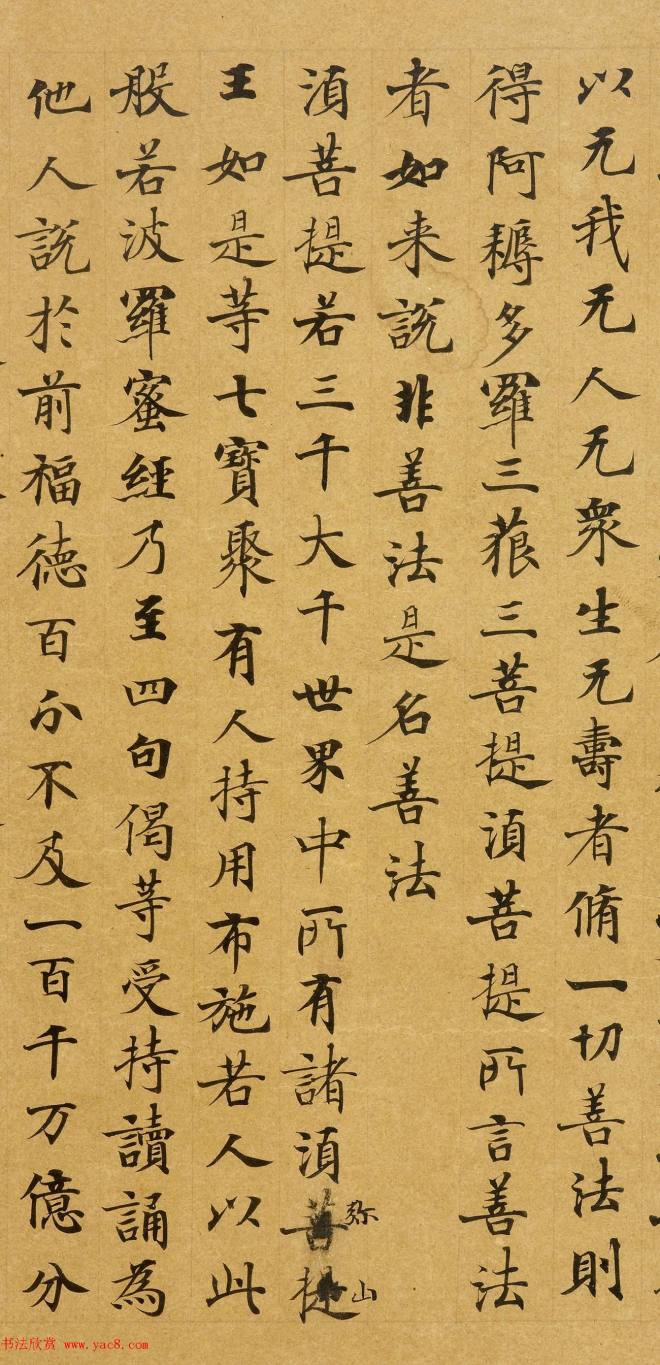 以无我无人无衆生无壽者脩一切善法則
得阿耨多羅三藐三菩提湏菩提所言善法
者如来說非善法是名善法
湏菩提若三千大千世界中所有諸湏菩提
弥山
王如是等七寶聚有人持用布施若人以此
般若波羅蜜經乃至四句偈等受持讀誦為
他人說於前福德百分不及一百千万億分
书法欣赏 www.yac8.com